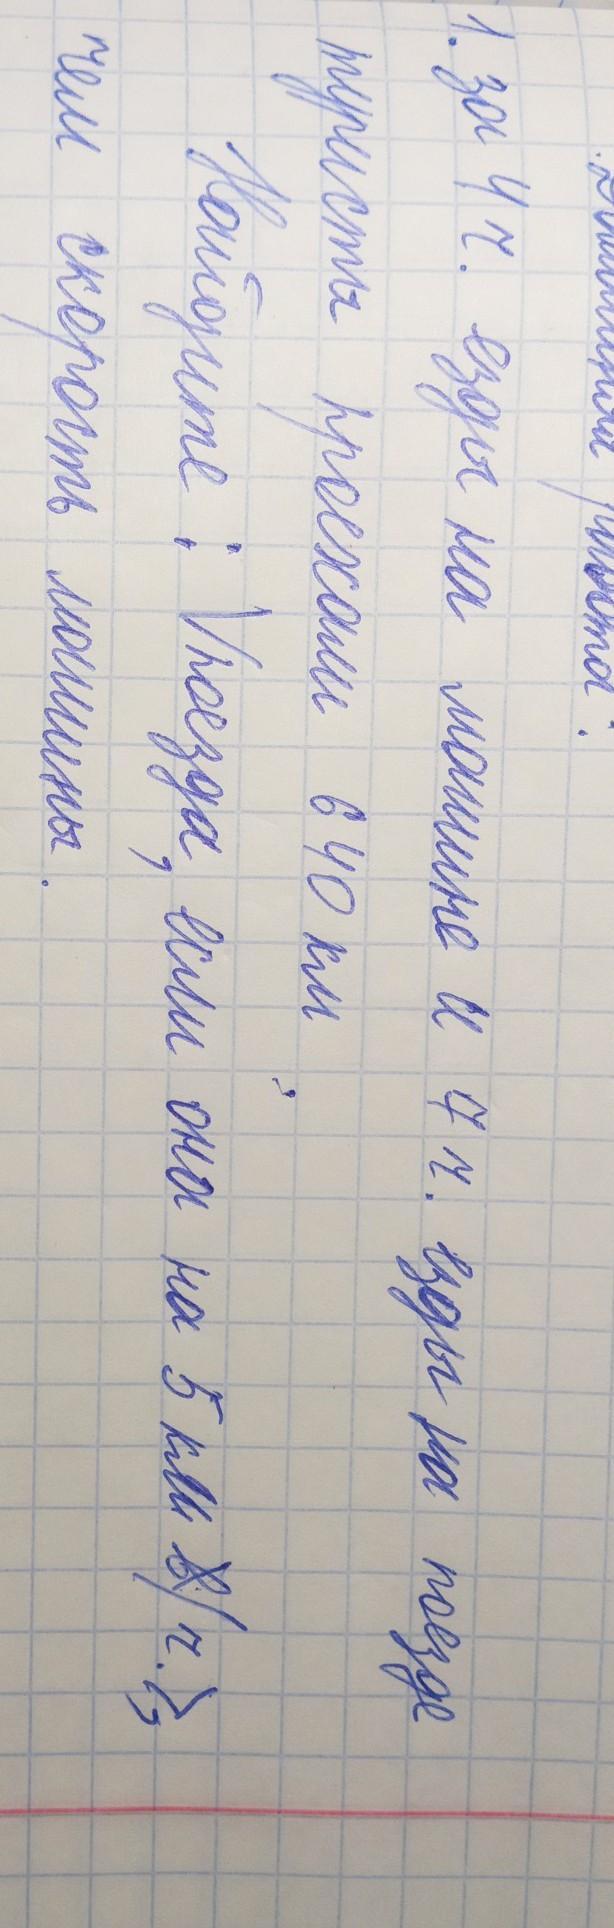 работа".
1. за 4 ч. езды на машине и 7 ч. езды на поезде
туристы проехали 640 км
Найдите : Vпоезда, если она на 5 км /ч. >,
чем скорость машины.